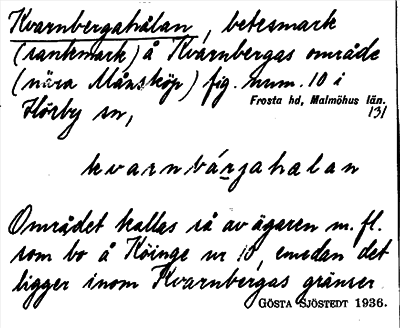 Kvarnbergahålan, betesmark
(sankmark) å Kvarnbergas område
(nära Månsköp) fig. num. 10 i
Hörby sn,
Frosta hd, Malmöhus län.
131
kvarnbárjahalan
Området kallas så av ägaren m. fl.
som bo å Köinge nr 10, emedan det
ligger inom Kvarnbergas gränser
GÖSTA SJÖSTEDT 1936.